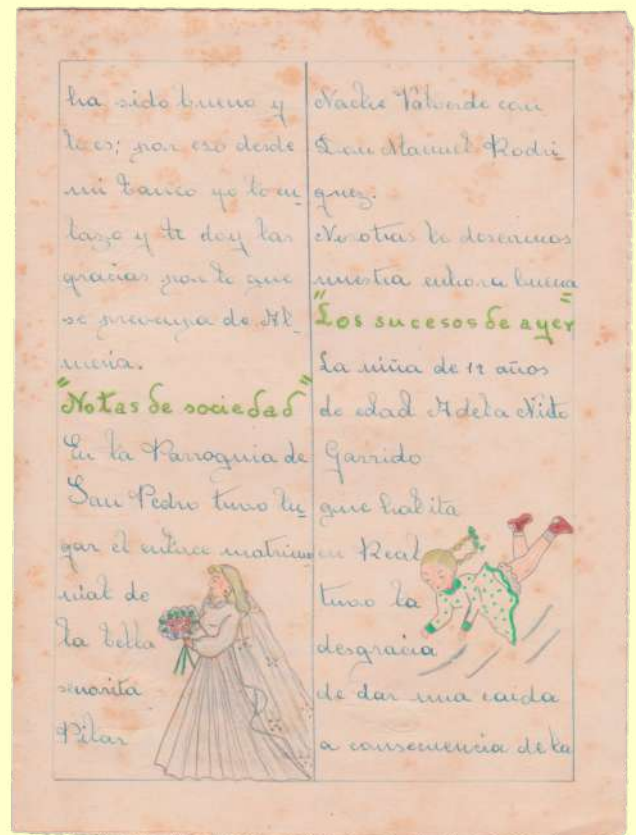 ha sido bueno y
lo es; por eso desde
mi banco yo lo en
lazo y te doy las
gracias por lo que
se preocupa de Al_
mería.
"Notas de sociedad"
En la Parroquia de
San Pedro tuvo lu_
gar el enlace matrimo
nial de
la bella
senorita
Pilar
Valverde con
Don Manuel Rodri_
guez.
Nosotras le deseamos
nuestra enhora buena
"Los sucesos de ayer"
La niña de 12 años
de edad Adela Nieto
Garrido
que habita
en Real
tuvo la
desgracia
de dar una caida
a consecuencia de la